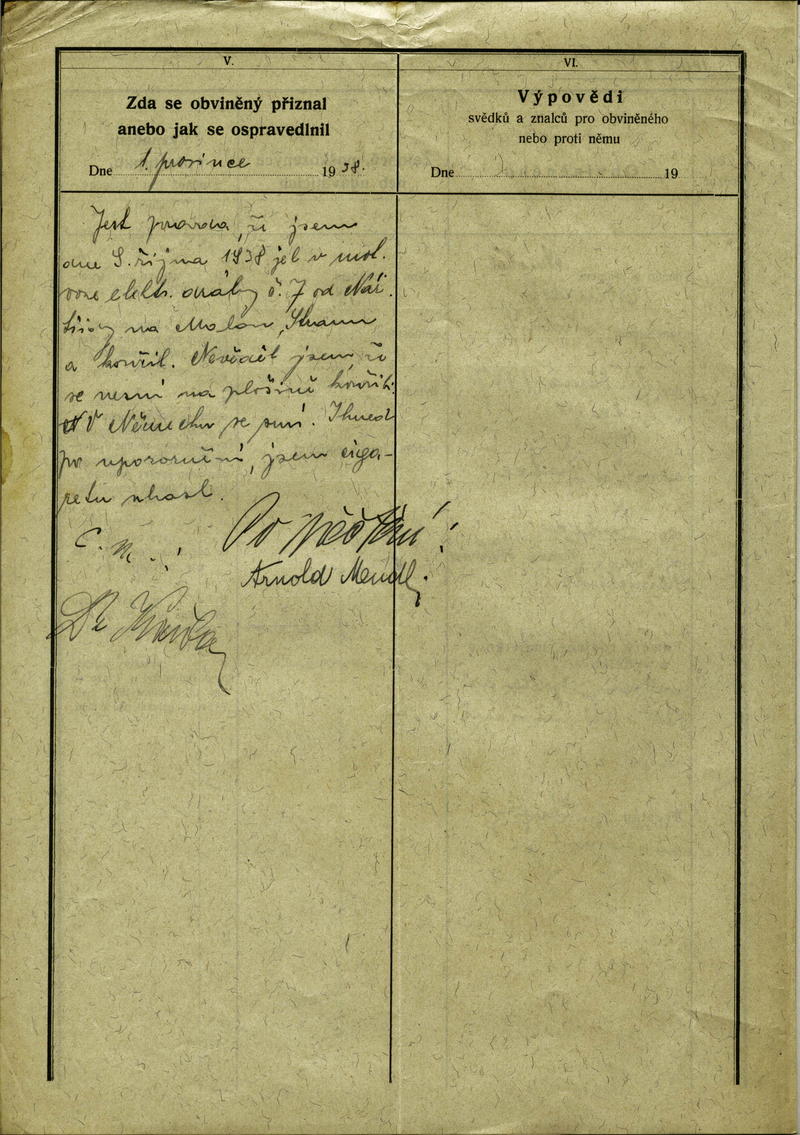 V.
Zda se obviněný přiznal
anebo jak se ospravedlnil
Dne 1. prosince 1938.
VI.
Výpovědi
svědků a znalců pro obviněného
nebo proti němu
Dne 19
Jest pravda, že jsem
dne 9. října 1938 jel v mot.
voze elektr. dráhy č. 7 od Nár.
na Malou Stranu
a kouřil. Nevěděl jsem, že
se nesmí na plošině kouřit.
V Německu se smí. Ihned
po upozornění, jsem ciga-
retu uhasil.
Po přečtení!
Arnold Mendl.
Dr